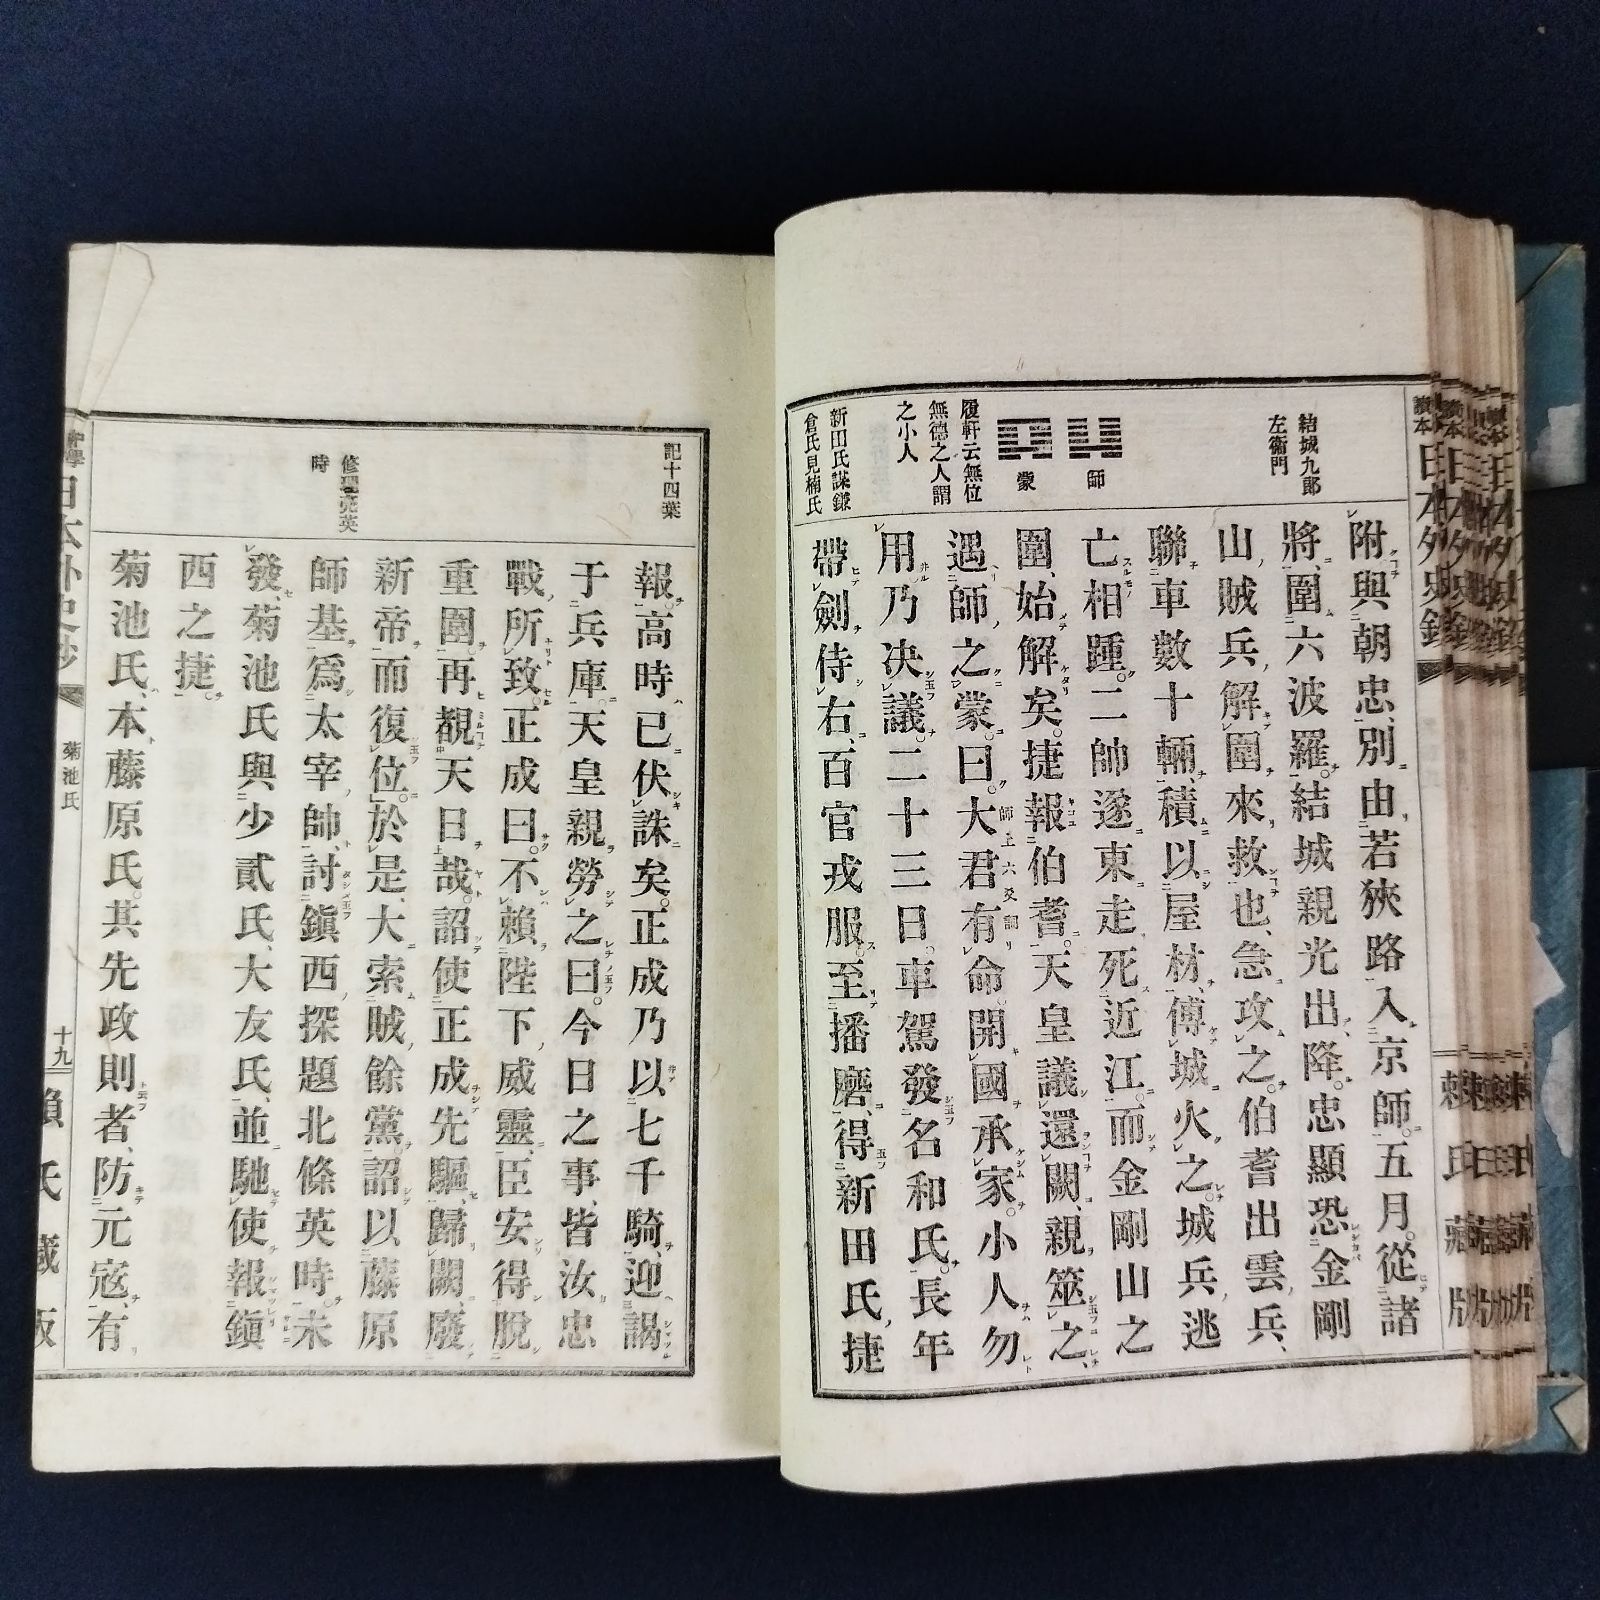 結城九郎
左衞門
師
蒙
履軒云無位
無德之人謂
之小人
新田氏謀鎌
倉氏見楠氏
附與朝忠、別由若狹路入京師。五月。從諸
將圍六波羅。結城親光出降。忠顯恐金剛
山賊兵解圍來救也、急攻之。伯耆出雲兵、
聯車數十輛、積以屋材、傅城火之。城兵逃
亡相踵。二帥遂東走死近江。而金剛山之
圍、始解矣。捷報伯耆。天皇議還闕、親筮之、
遇師之蒙。曰。大君有命。開國承家。小人勿
用。乃決議。二十三日。車駕發名和氏。長年
帶劍侍右、百官戎服。至播磨、得新田氏捷
記十四葉
修理亮英
時
報。高時已伏誅矣。正成乃以七千騎迎謁
于兵庫。天皇親勞之曰。今日之事、皆汝忠
戰所致。正成曰。不賴陛下威靈、臣安得脫
重圍、再覩天日哉。詔使正成先驅、歸闕、廢
新帝而復位。於是、大索賊餘黨。詔以藤原
師基爲太宰帥、討鎭西探題北條英時。未
發、菊池氏與少貳氏、大友氏、並馳使報鎭
西之捷。
菊池氏、本藤原氏。其先政則者、防元寇、有
日本外史鈔
菊池氏
十九
賴氏藏版